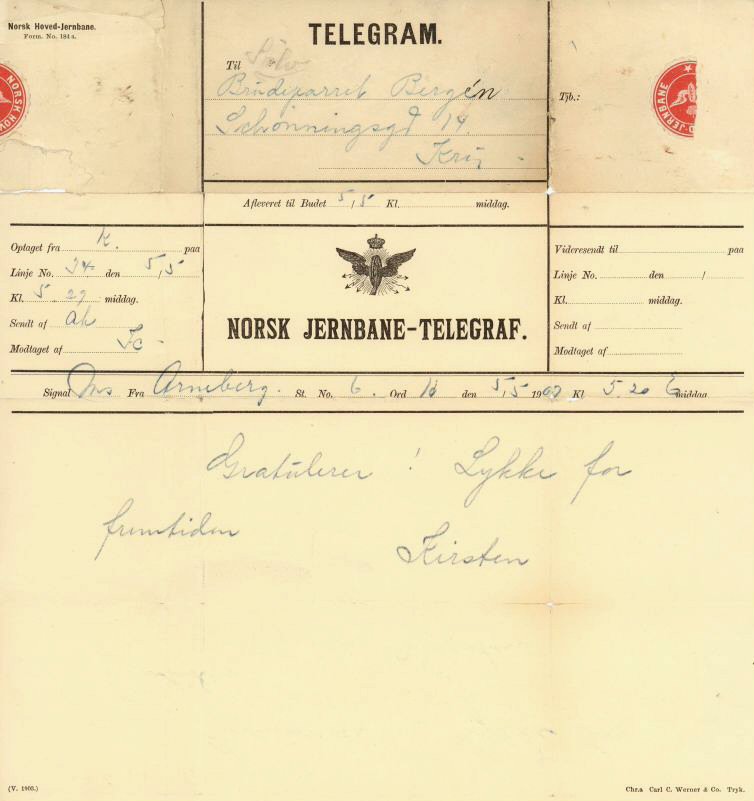 Norsk Hoved-Jernbane.
Form. No. 184 a.
TELEGRAM.
Til
Brudeparret Bergén
Schønningsgd 14.
Tjb.:
NORSK HOV
D-JERNBANE
Afleveret til Budet 5/5 Kl. middag.
Optaget fra K. paa
Linje No. 24 den 5/5
Kl. 5.29 middag.
Sendt af ak
Modtaget af
NORSK JERNBANE-TELEGRAF.
Videresendt til paa
Linje No. den /
Kl. middag.
Sendt af
Modtaget af
Signal Fra Arneberg. St. No. 6. Ord den 5/5 1907 Kl 5.20 E middag
Gratulerer! Lykke for
fremtiden
Kirsten
(V. 1905.)
Chr.a Carl C. Werner & Co. Tryk.